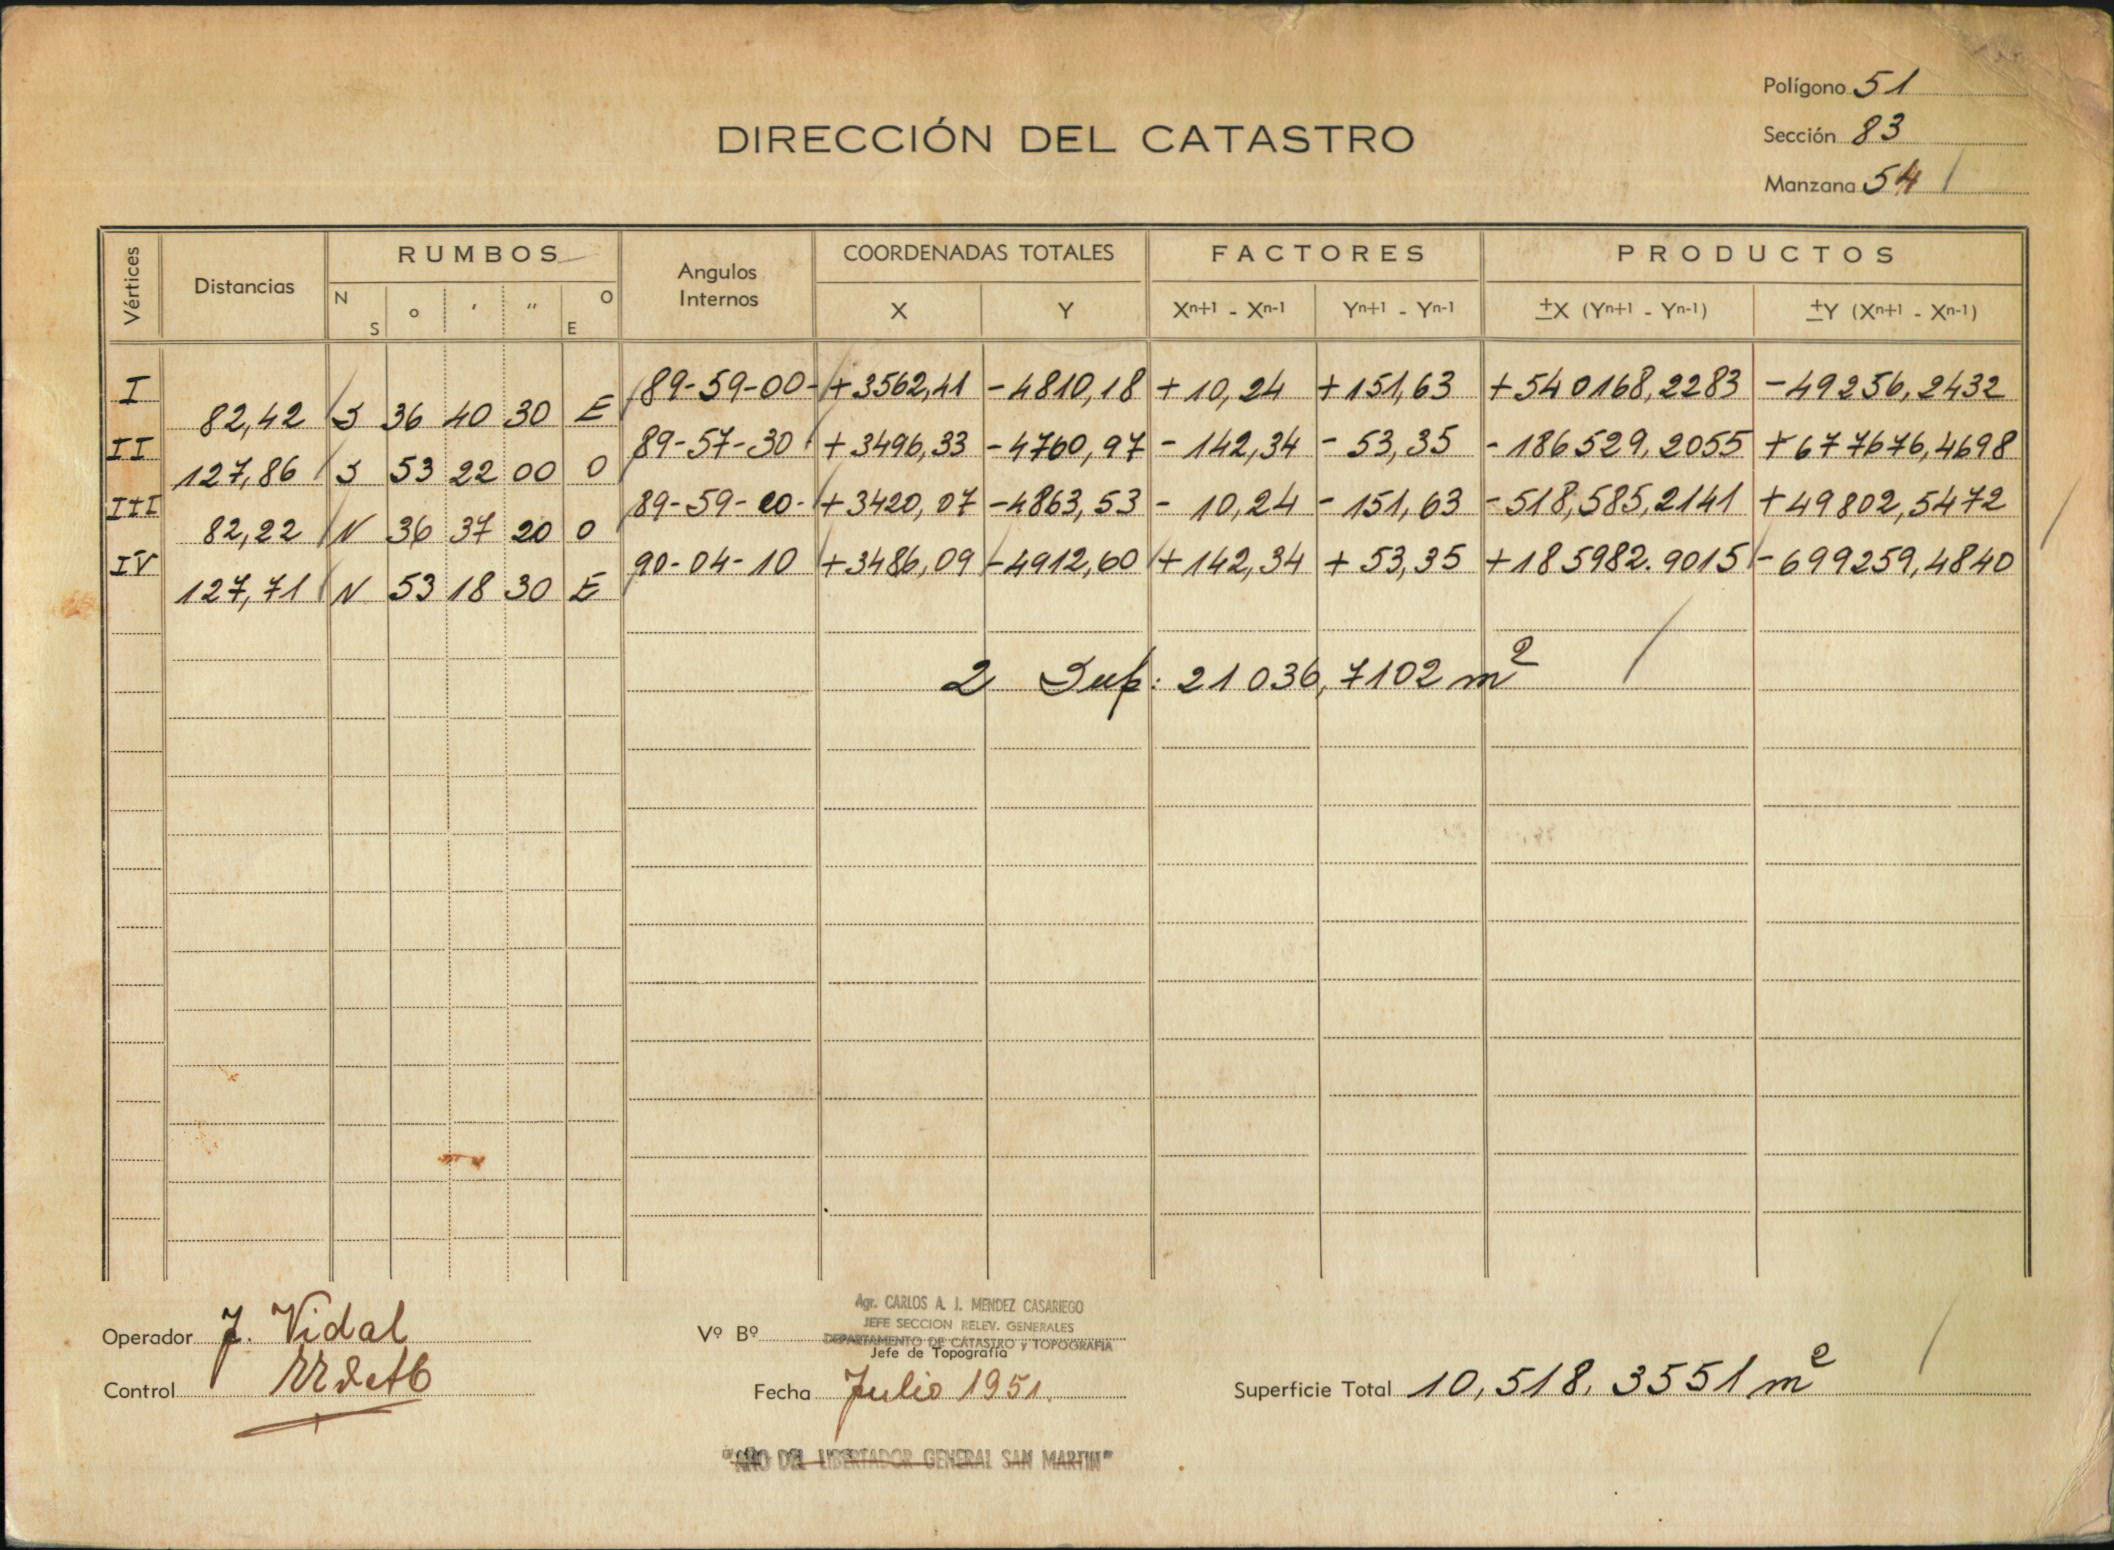 Polígono 51
DIRECCIÓN DEL CATASTRO
Sección 83
Manzana 54
Vértices Distancias RUMBOS Angulos Internos COORDENADAS TOTALES FACTORES PRODUCTOS
N S o ' " O E X Y Xn+1 - Xn-1 Yn+1 - Yn-1 ±X (Yn+1 - Yn-1) ±Y (Xn+1 - Xn-1)
I 89-59-00 +3562,41 -4810,18 +10,24 +151,63 +540168,2283 -49256,2432
82,42 S 36 40 30 E
II 89-57-30 +3496,33 -4760,97 -142,34 -53,35 -186529,2055 +677676,4698
127,86 S 53 22 00 O
III 89-59-20 +3420,07 -4863,53 -10,24 -151,63 -518,585,2141 +49802,5472
82,22 N 36 37 20 O
IV 90-04-10 +3486,09 -4912,60 +142,34 +53,35 +185982.9015 -699259,4840
127,71 N 53 18 30 E
2 Sup: 21036,7102 m²
Agr. CARLOS A. J. MENDEZ CASARIEGO
JEFE SECCION RELEV. GENERALES
Operador J. Vidal Vº Bº DEPARTAMENTO DE CATASTRO y TOPOGRAFIA
Jefe de Topografía
Control Fecha Julio 1951. Superficie Total 10,518.3551 m²
"AÑO DEL LIBERTADOR GENERAL SAN MARTIN"